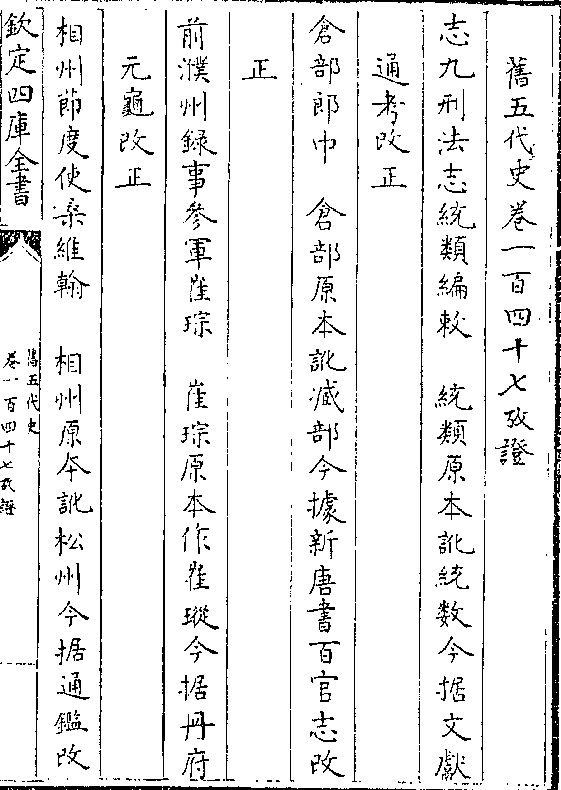 舊五代史卷一百四十七攷證
志九刑法志統類編敕　統類原本訛統數今据文獻
通考改正
倉部郎中　倉部原本訛臧部今據新唐書百官志改
正
前濮州錄事參軍崔琮　崔琮原本作崔瑽今据冊府
元龜改正
相州節度使桑維翰　相州原本訛松州今据通鑑改
欽定四庫全書
舊五代史
卷一百四十七攷證